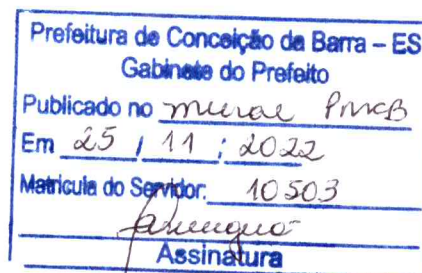 Prefeitura de Conceição da Barra – ES
Gabinete do Prefeito
Publicado no mural PMCB
Em 25 / 11 / 2022
Matricula do Servidor: 10503
Assinatura